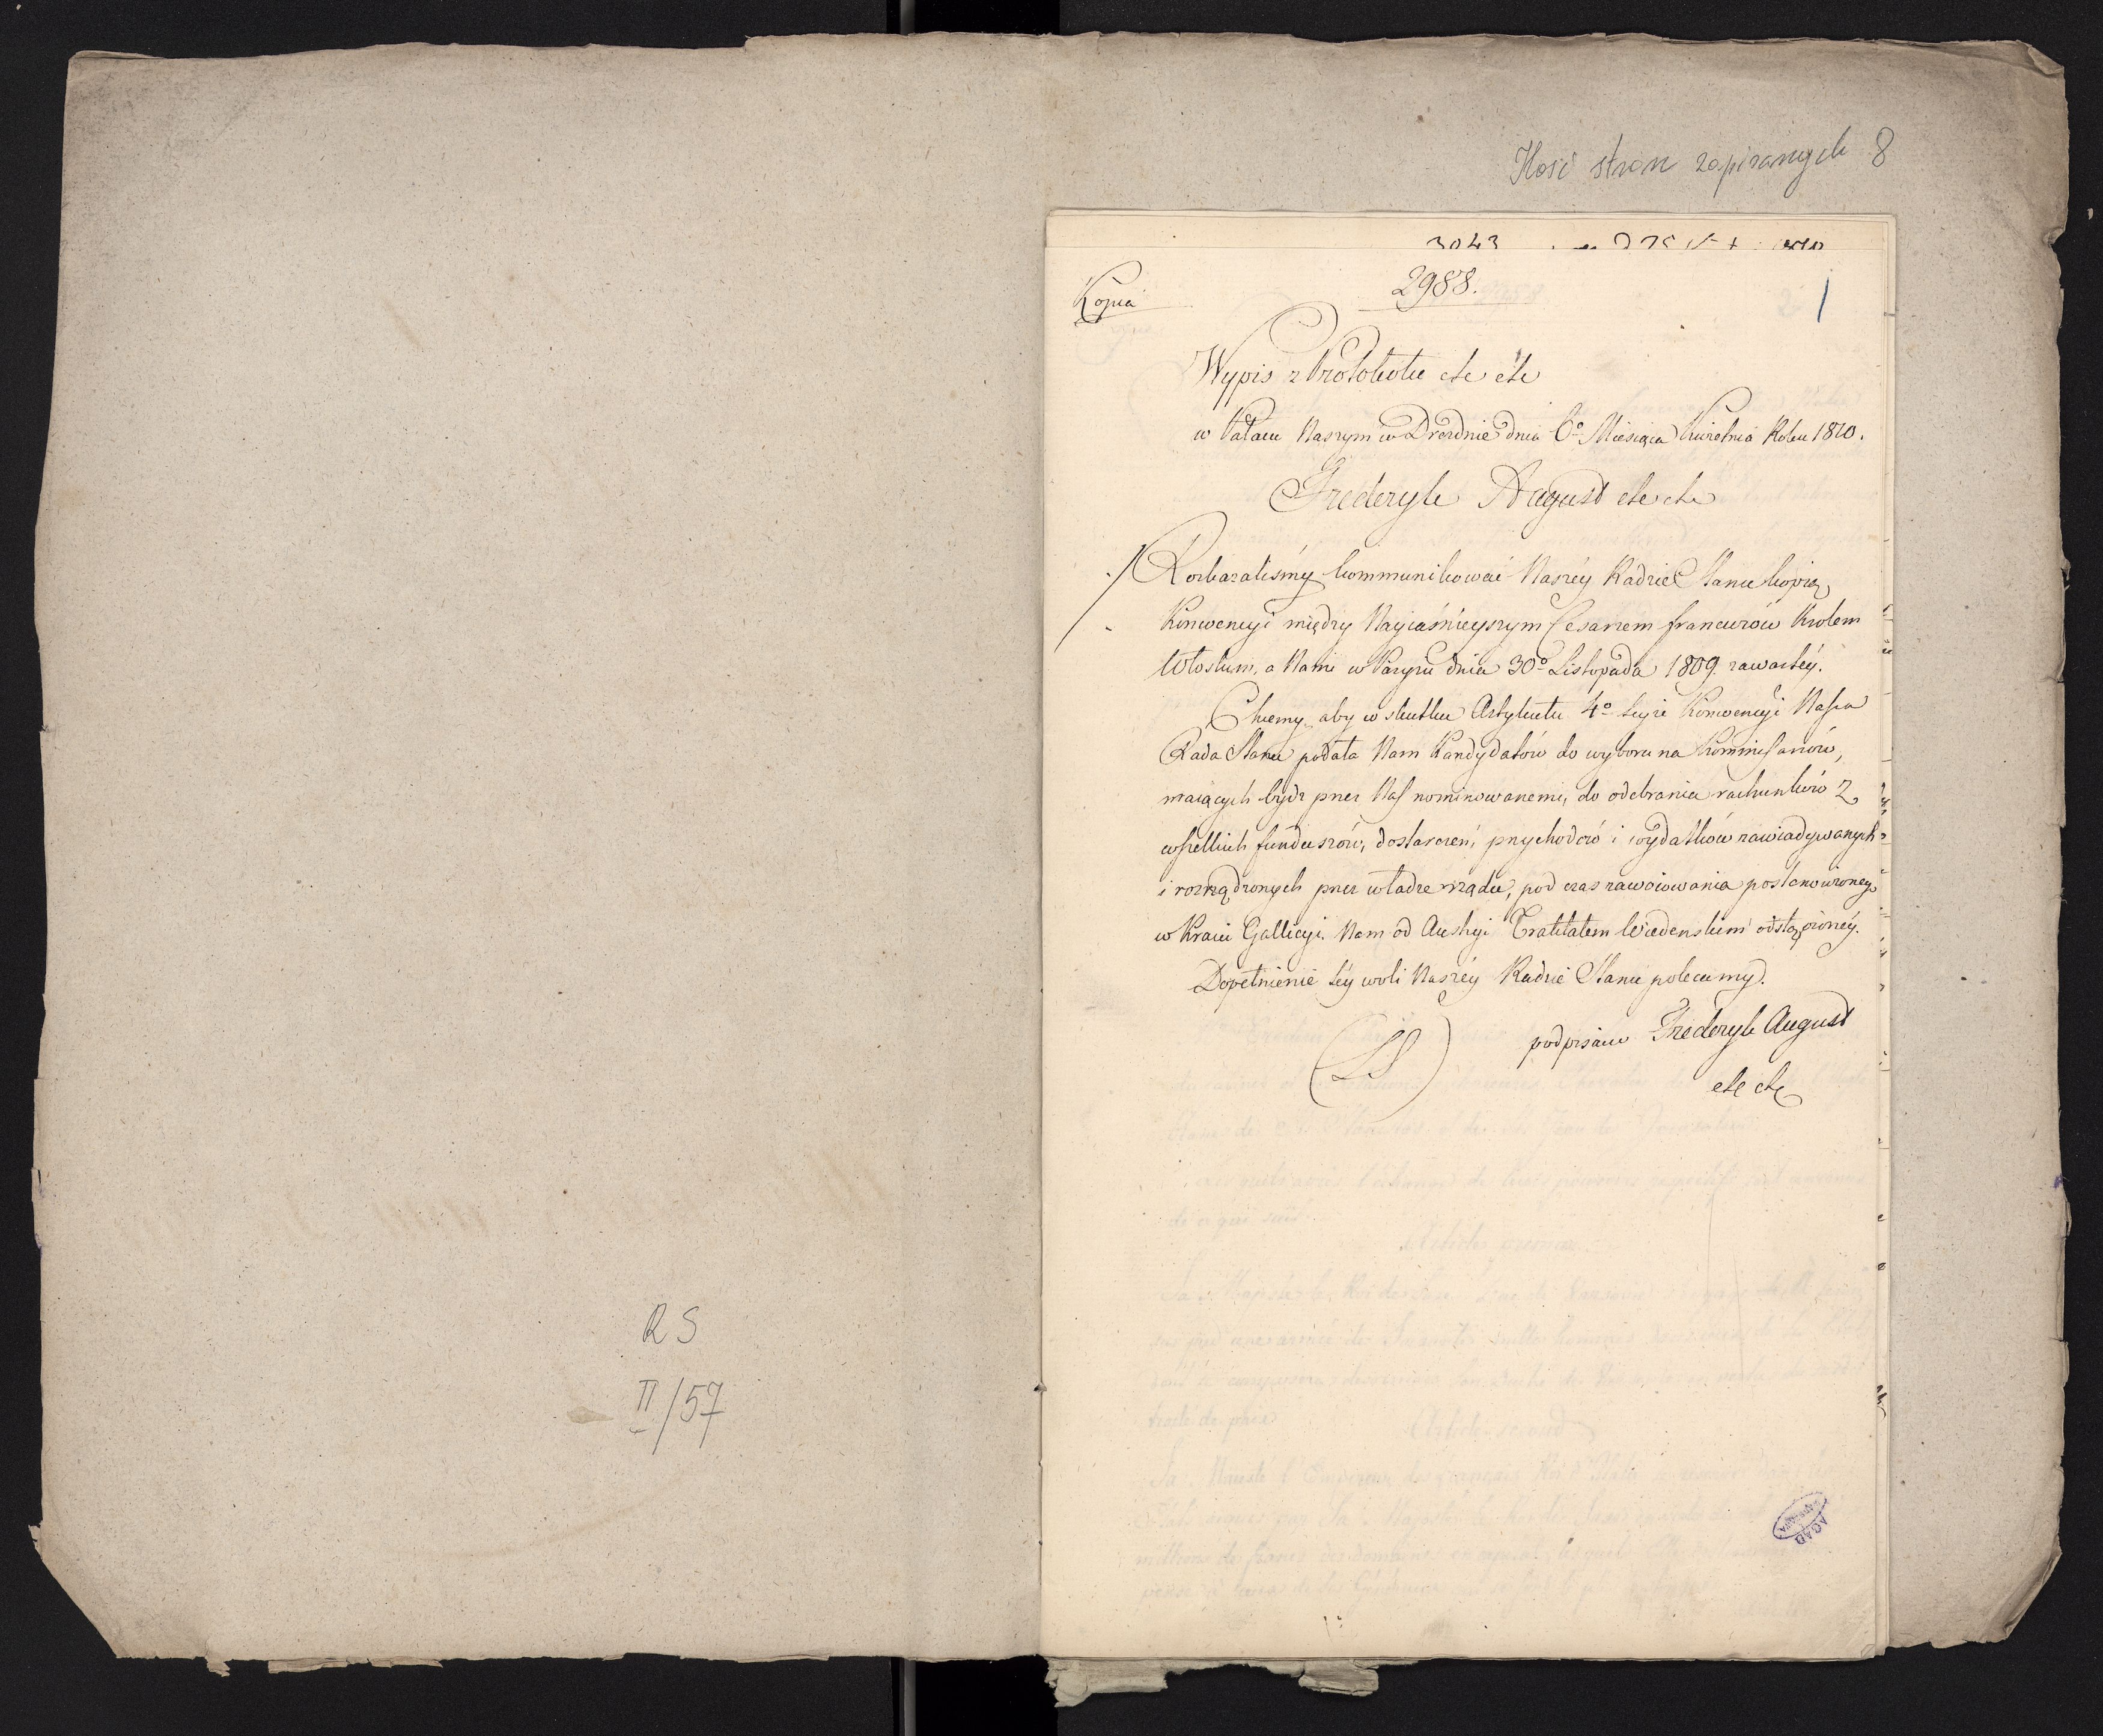 Ilość stron zapisanych 8
3043
2988.
1
Kopia
Wypis z Protokołu etc etc
w Pałacu Naszym w Dreźnie dnia 6º Miesiąca Kwietnia Roku 1810.
Frederyk August etc etc
Rozkazaliśmy kommunikować Naszéy Radzie Stanu kopią
Konwencyi między Nayiaśnieyszym Cesarzem francuzów Krolem
Włoskim, a Nami w Paryżu dnia 30º Listopada 1809. zawartéy.
Chcemy aby w skutku Artykułu 4º teyże Konwencyi Nasza
Rada Stanu podała Nam Kandydatów do wyboru na Kommissarzów,
maiących bydź przez Nas nominowanemi, do odebrania rachunków z
wszelkich funduszów, dostarczeń, przychodów i wydatków zawiadywanych
i rozrządzonych przez władze rządu, pod czas zawoiowania postanowioney
w Kraiu Gallicyi Nam od Austryi Traktatem Wiedenskim odstąpionéy.
Dopełnienie téy woli Naszéy Radzie Stanu polecamy.
(LS)
podpisano Frederyk August
etc etc
RS
II/57
AGAD